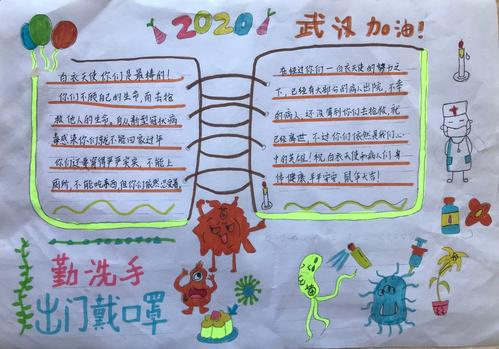 2020
武汉加油!
白衣天使你们是最棒的!
你们不顾自己的生命,而去抢
救他人的生命,自从新型冠状病
毒感染你们就不能回家过年
你们还要穿得严严实实,不能上
厕所,不能吃东西,但你们依然坚守着,
在经过你们一白衣天使的努力之
下,已经有大部分的病人出院,不幸
的病人,还没等到你们去抢救,就
已经离世,不过你们依然是我们心
中的英雄!祝白衣天使和病人们身
体健康,平平安安,鼠年大吉!
勤洗手
出门戴口罩